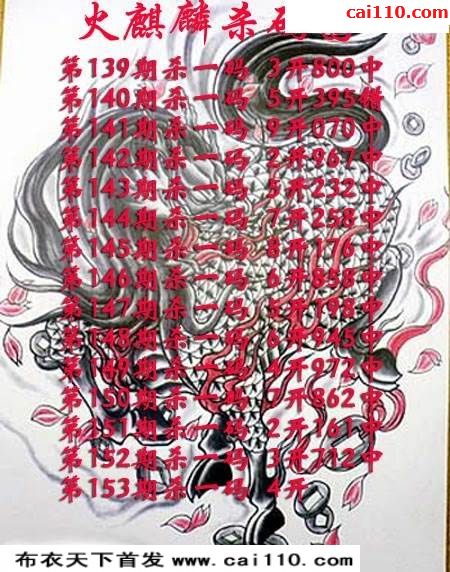 cai110.com
火麒麟杀码
第139期杀一码 3开800中
第140期杀一码 5开395错
第141期杀一码 9开070中
第142期杀一码 2开967中
第143期杀一码 5开232中
第144期杀一码 7开258中
第145期杀一码 8开176中
第146期杀一码 6开858中
第147期杀一码 5开798中
第148期杀一码 6开945中
第149期杀一码 4开972中
第150期杀一码 7开862中
第151期杀一码 2开161中
第152期杀一码 3开712中
第153期杀一码 4开
布衣天下首发 www.cai110.com